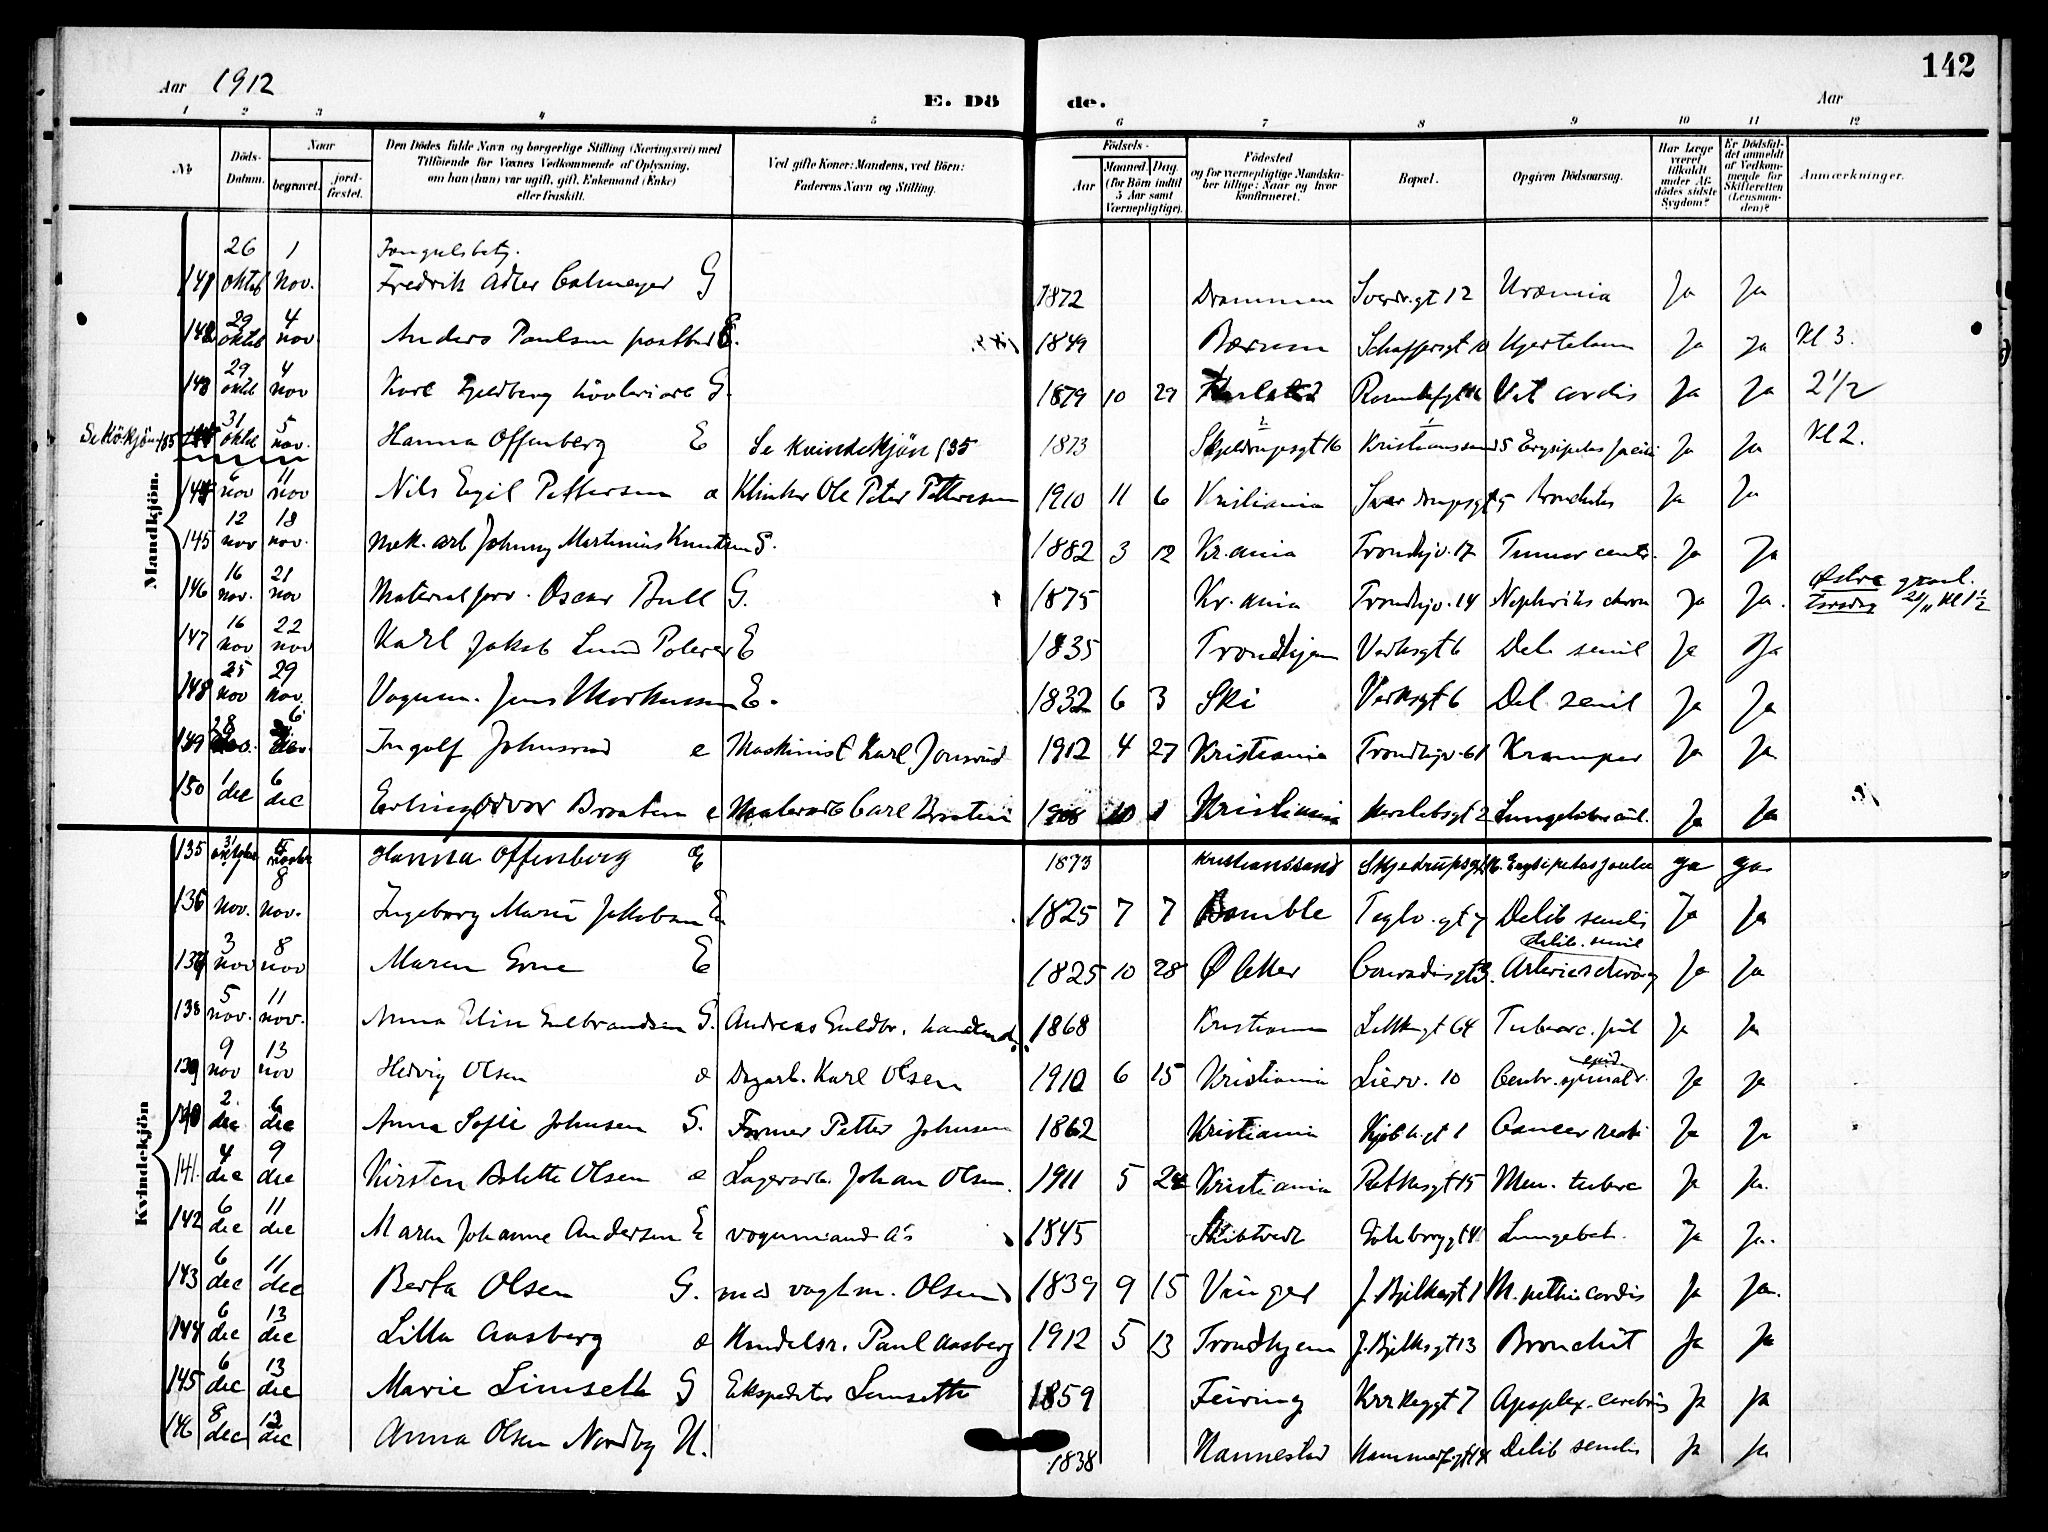 142
Aar 1912
E. Dö de.
Aar
1 2 3 4 5 6 7 8 9 10 11 12
No
Döds-Datum.
Naar
begravet.
jordfæstet.
Den Dödes fulde Navn og borgerlige Stilling (Næringsvei) med
Tilföiende for Voxnes Vedkommende af Oplysning,
om han (hun) var ugift, gift, Enkemand (Enke)
eller fraskilt.
Ved gifte Koner: Mandens, ved Börn:
Faderens Navn og Stilling.
Födsels-
Aar
Maaned. Dag.
(for Börn indtil 5 Aar samt Værnepligtige).
Födested
og for værnepligtige Mandskaber tillige: Naar og hvor konfirmeret.
Bopæl.
Opgiven Dödsaarsag.
Har Læge været tilkaldt under Afdödes sidste Sygdom?
Er Dödsfaldet anmeldt af Vedkommende for Skifteretten (Lensmanden)?
Anmærkninger.
Mandkjön.
141 26 oktob 1 nov. Fredrik Adler Calmeyer G 1872 Drammen Sverdr.gt 12 Uræmia Ja Ja
142 29 oktob 4 nov Anders Paulsen E. 1849 Bærum 10 Ja Ja Kl 3.
143 29 oktob 4 nov Karl G. 1879 10 29 Vit cordis Ja Ja 2 1/2
31 oktob 5 nov. Hanna Offenberg E Se kvindekjön 135 1873 Skjeldrupsgt 16 Kristianssand Erysipelas faciei Ja Ja Kl 2.
144 6 nov 11 nov Nils Egil Pettersen e Klinker Ole Peter Pettersen 1910 11 6 Kristiania 5 Bronchitis Ja Ja
145 12 nov 18 nov. Mek. arb Johnny Martinius Knutsen G. 1882 3 12 Kr.ania Trondhjv. 17 Tumor Ja Ja
146 16 nov. 21 nov Materialforv. Oscar Bull G. 1875 Kr.ania Trondhjv. 14 Nephritis chron Ja Ja. Østre gravl. Torsdag 21/11 Kl 1 1/2
147 16 nov 22 nov Karl Jakob Lund Polerer E 1835 Trondhjem Verksgt 6 Deb. senil Ja Ja
148 25 nov 29 nov. Vognm. Jens Markussen E. 1832 6 3 Ski Verksgt 6 Deb. senil Ja Ja
149 28 nov. 6 dec. Ingolf Johnsrud e Maskinist Karl Jonsrud 1912 4 27 Kristiania Trondhjv. 61 Kramper Ja Ja
150 1 dec 6 dec Erling Odvar Braaten e Carl Braaten 1908 10 1 Kristiania Herslebsgt 2 Ja Ja
Kvindekjön
135 31 oktober 5 Hanna Offenberg E 1873 Kristianssand Skjedrupsgt 16. Erysipelas faciei Ja Ja
136 nov. 8 nov. Ingeborg Marie Jakobsen E 1825 7 7 Bamble Teglv.gt 7 Debil senilis Ja Ja
137 3 nov 8 nov Maren E 1825 10 28 Ø Aker Conradisgt 3. debil. senil Ja Ja
138 5 nov. 11 nov. Anna Elise Gulbrandsen G. Andreas Guldbr. 1868 Kristiania 64 Tuberc. pul Ja Ja
139 9 nov 13 nov Hedvig Olsen e Dagarb. Karl Olsen 1910 6 15 Kristiania Lierv. 10 Cerebr. spinal epid Ja Ja
140 2. dec 6 dec Anna Sofie Johnsen G. Former Petter Johnsen 1862 Kristiania 1 Cancer recti Ja Ja
141. 4 dec 9 dec Kirsten Bolette Olsen e Lagerarb. Johan Olsen. 1911 5 24 Kristiania Rathkesgt 15 Men. tuberc Ja Ja.
142 6 dec 11 dec Maren Johanne Andersen E vognmand A's 1845 Skibtvedt Göteborggt 4 Lungebet. Ja Ja.
143 6 dec 11 dec Berta Olsen G. med vogtm. Olsen 1839 9 15 Vinger J. Bjelkesgt 1 cordis Ja Ja.
144 6 dec 13 dec Lilla Aasberg e Handelsr. Paul Aasberg 1912 5 13 Trondhjem J. Bjelkesgt 13 Bronchit Ja Ja
145 6 dec 13 dec Marie Limseth G Ekspeditör Limseth 1859 Feiring 7 Apoplex. cerebri Ja Ja
146 8 dec 13 dec Anna Olsen Nordby U. 1838 Vannestad Hammerf.gt 14 Debil senilis Ja Ja